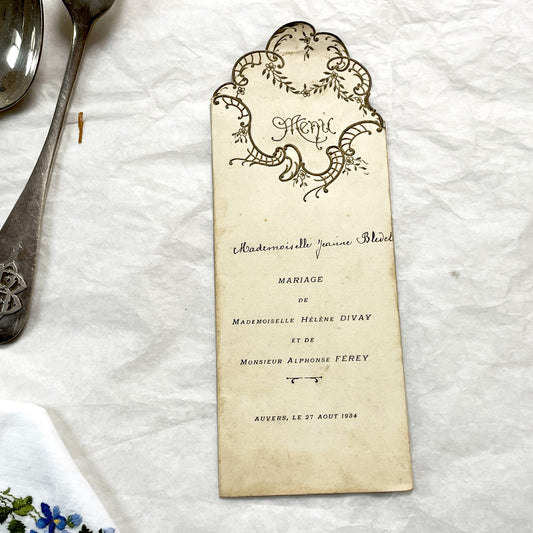 Menu
Mademoiselle Jeanne Bledel
MARIAGE
DE
MADEMOISELLE HÉLÈNE DIVAY
ET DE
MONSIEUR ALPHONSE FÉREY
AUVERS, LE 27 AOUT 1934